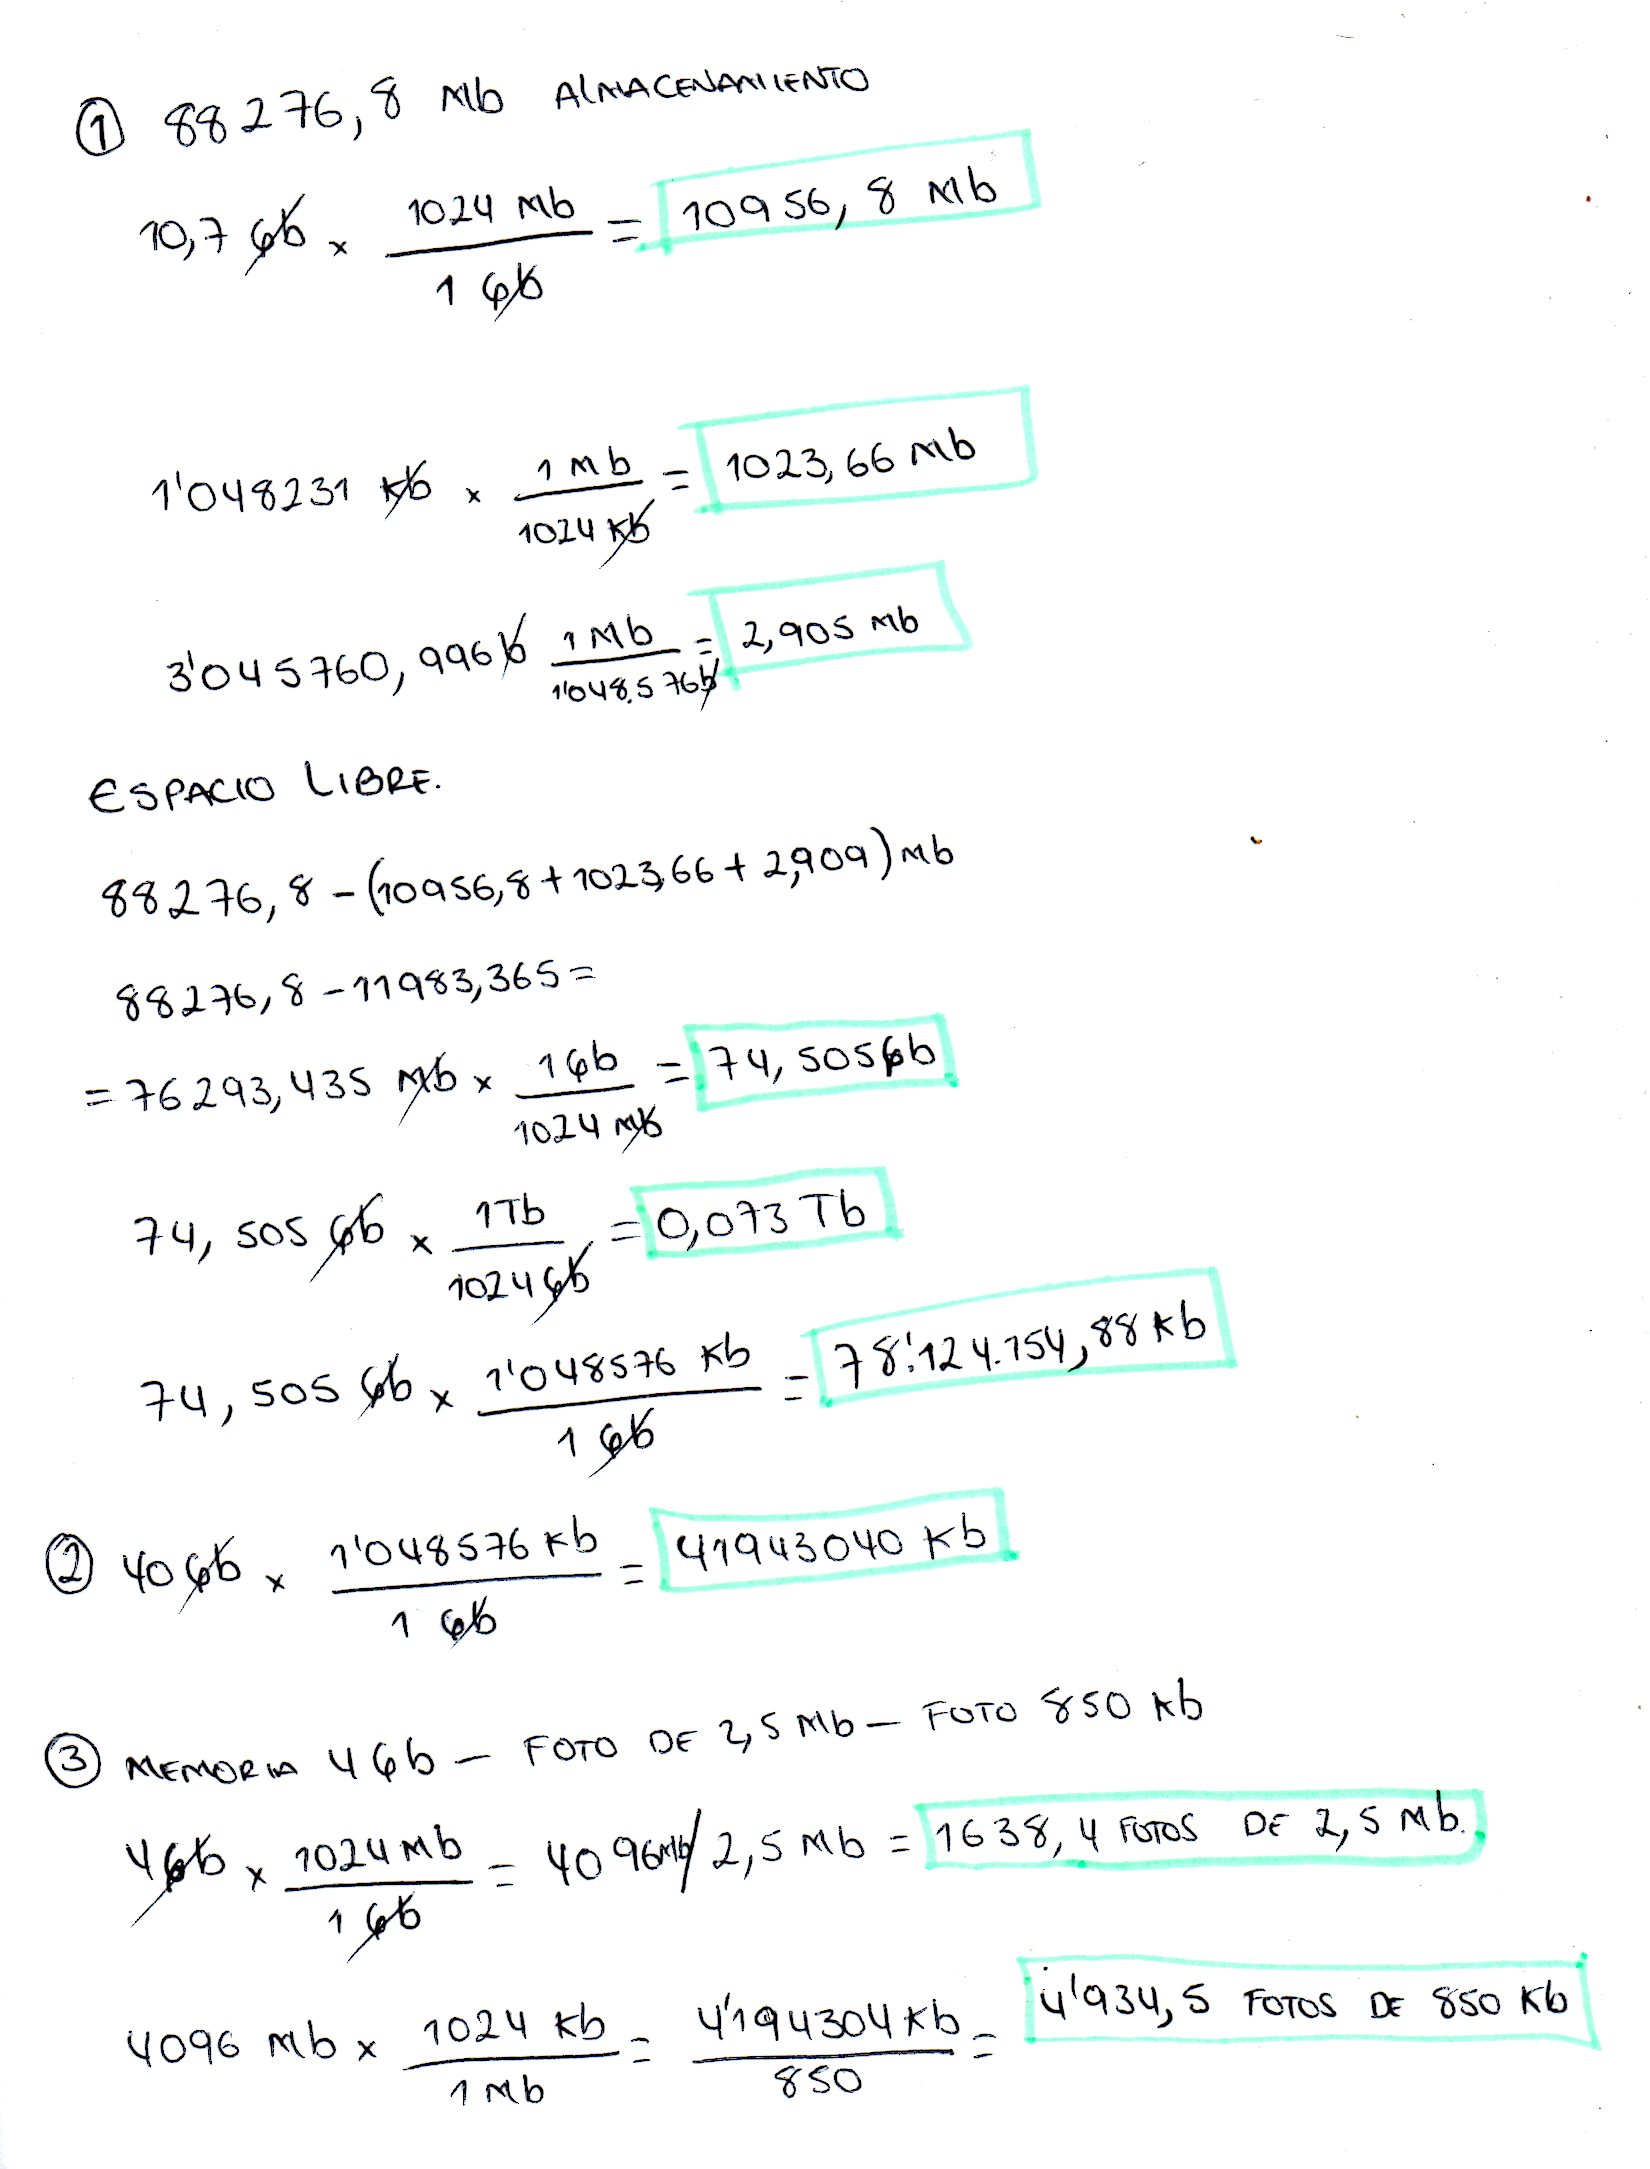 ① 88276,8 Mb ALMACENAMIENTO
10,7 Gb × 1024 Mb / 1 Gb = 10956,8 Mb
1'048231 Kb × 1 Mb / 1024 Kb = 1023,66 Mb
3'045760,996 b 1 Mb / 1'048.576 b = 2,905 Mb
ESPACIO LIBRE.
88276,8 - (10956,8 + 1023,66 + 2,909) Mb
88276,8 - 11983,365 =
= 76293,435 Mb × 1 Gb / 1024 Mb = 74,505 Gb
74,505 Gb × 1 Tb / 1024 Gb = 0,073 Tb
74,505 Gb × 1'048576 Kb / 1 Gb = 78'.124.154,88 Kb
② 40 Gb × 1'048576 Kb / 1 Gb = 41943040 Kb
③ MEMORIA 4 Gb - FOTO DE 2,5 Mb - FOTO 850 Kb
4 Gb × 1024 Mb / 1 Gb = 4096 Mb / 2,5 Mb = 1638,4 FOTOS DE 2,5 Mb.
4096 Mb × 1024 Kb / 1 Mb = 4'194304 Kb / 850 = 4'934,5 FOTOS DE 850 Kb